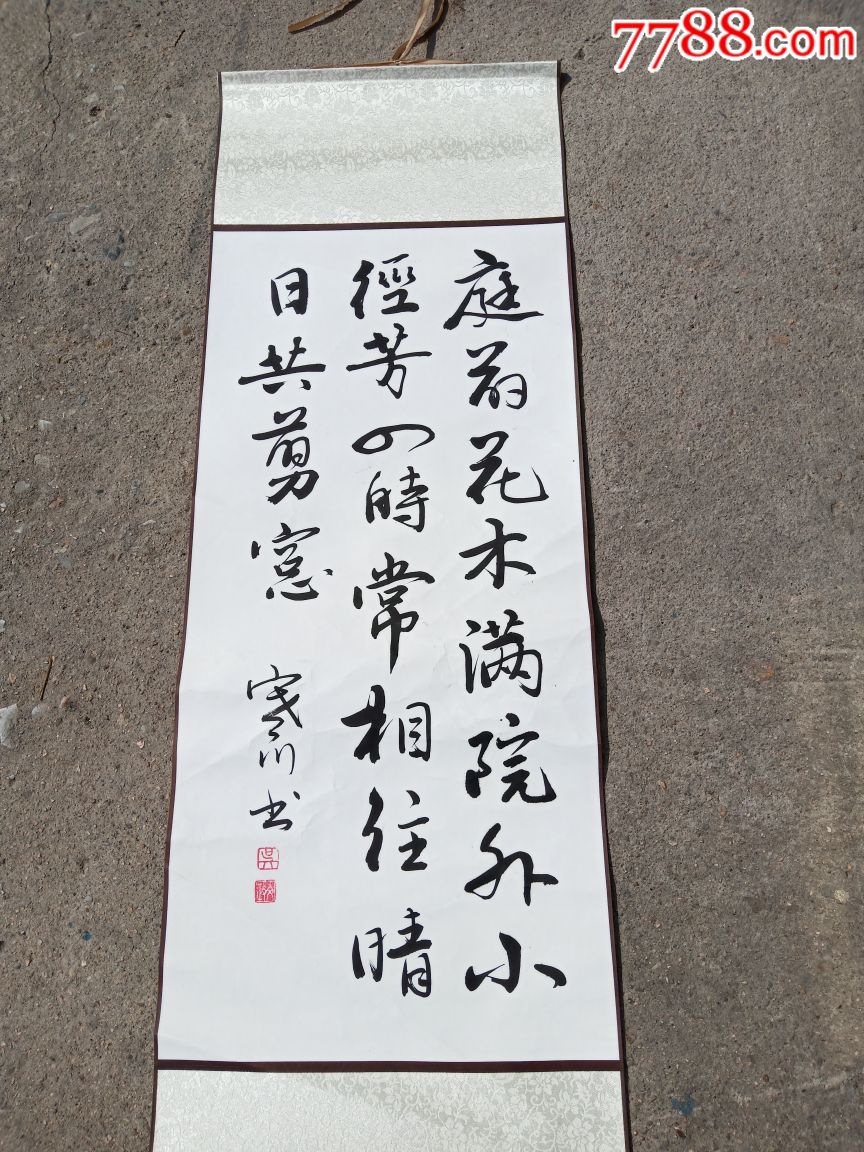 7788.com
庭前花木满院外小
徑芳四時常相往晴
日共剪窓
寒川书